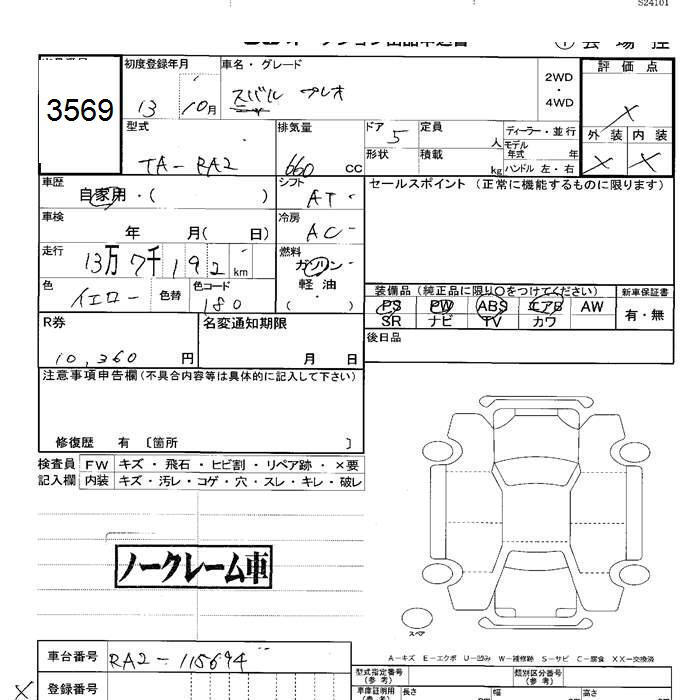 S24101
オークション出品申込書
① 会場控
3569
初度登録年月
13
10月
車名・グレード
スバル プレオ
2WD
・
4WD
評価点
×
外装 内装
× ×
型式
TA-RA2
排気量
660 cc
ドア 5
形状
定員 人
積載 kg
ディーラー・並行
モデル年式 年
ハンドル 左・右
車歴
自家用・( )
シフト
AT
セールスポイント (正常に機能するものに限ります)
車検
年 月( 日)
冷房
AC
走行
13万7千192 km
燃料
ガソリン・
軽油・
( )
色
イエロー
色替
色コード
180
装備品 (純正品に限り○をつけてください)
PS PW ABS エアB AW
SR ナビ TV カワ
新車保証書
有・無
R券
10,360 円
名変通知期限
月 日
後日品
注意事項申告欄(不具合内容等は具体的に記入して下さい)
修復歴 有 〔箇所 〕
検査員
記入欄
FW キズ・飛石・ヒビ割・リペア跡・×要
内装 キズ・汚レ・コゲ・穴・スレ・キレ・破レ
ノークレーム車
スペア
A-キズ E-エクボ U-凹み W-補修跡 S-サビ C-腐食 XX-交換済
車台番号
RA2-115694
× 登録番号
型式指定番号
(参考)
類別区分番号
(参考)
車庫証明用
(参考)
長さ cm
幅 cm
高さ cm